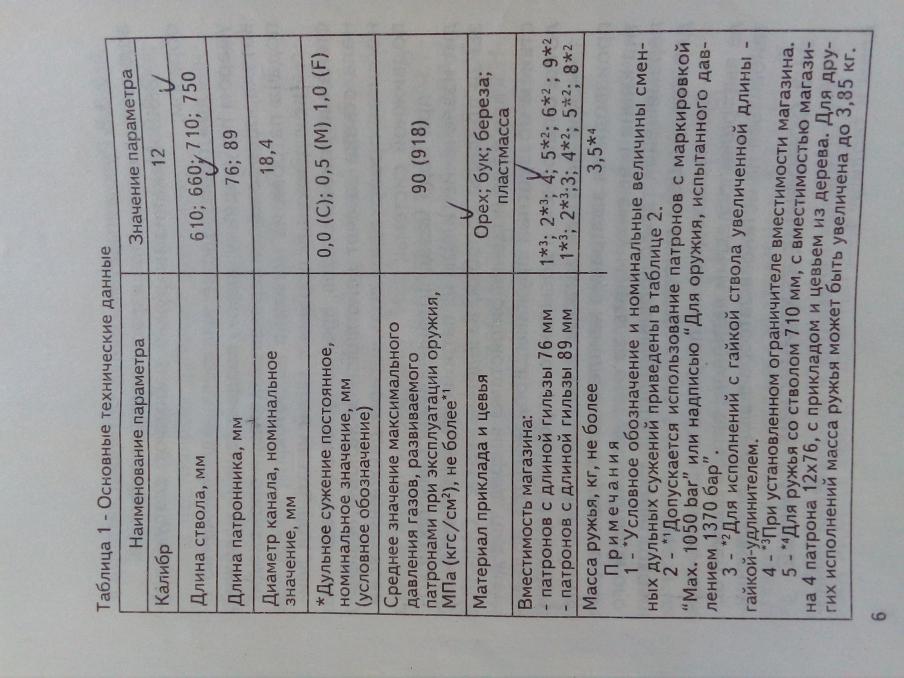 Таблица 1 - Основные технические данные
Наименование параметра
Значение параметра
Калибр
12
Длина ствола, мм
610; 660; 710; 750
Длина патронника, мм
76; 89
Диаметр канала, номинальное
значение, мм
18,4
*Дульное сужение постоянное,
номинальное значение, мм
(условное обозначение)
0,0 (С); 0,5 (М) 1,0 (F)
Среднее значение максимального
давления газов, развиваемого
патронами при эксплуатации оружия,
МПа (кгс/см²), не более*¹
90 (918)
Материал приклада и цевья
Орех; бук; береза;
пластмасса
Вместимость магазина:
- патронов с длиной гильзы 76 мм
- патронов с длиной гильзы 89 мм
1*³; 2*³; 4; 5*²; 6*²; 9*²
1*³; 2*³;3; 4*²; 5*²; 8*²
Масса ружья, кг, не более
3,5*⁴
Примечания
1 - *Условное обозначение и номинальные величины смен-
ных дульных сужений приведены в таблице 2.
2 - *¹Допускается использование патронов с маркировкой
“Max. 1050 bar” или надписью “Для оружия, испытанного дав-
лением 1370 бар”.
3 - *²Для исполнений с гайкой ствола увеличенной длины -
гайкой-удлинителем.
4 - *³При установленном ограничителе вместимости магазина.
5 - *⁴Для ружья со стволом 710 мм, с вместимостью магази-
на 4 патрона 12х76, с прикладом и цевьем из дерева. Для дру-
гих исполнений масса ружья может быть увеличена до 3,85 кг.
6